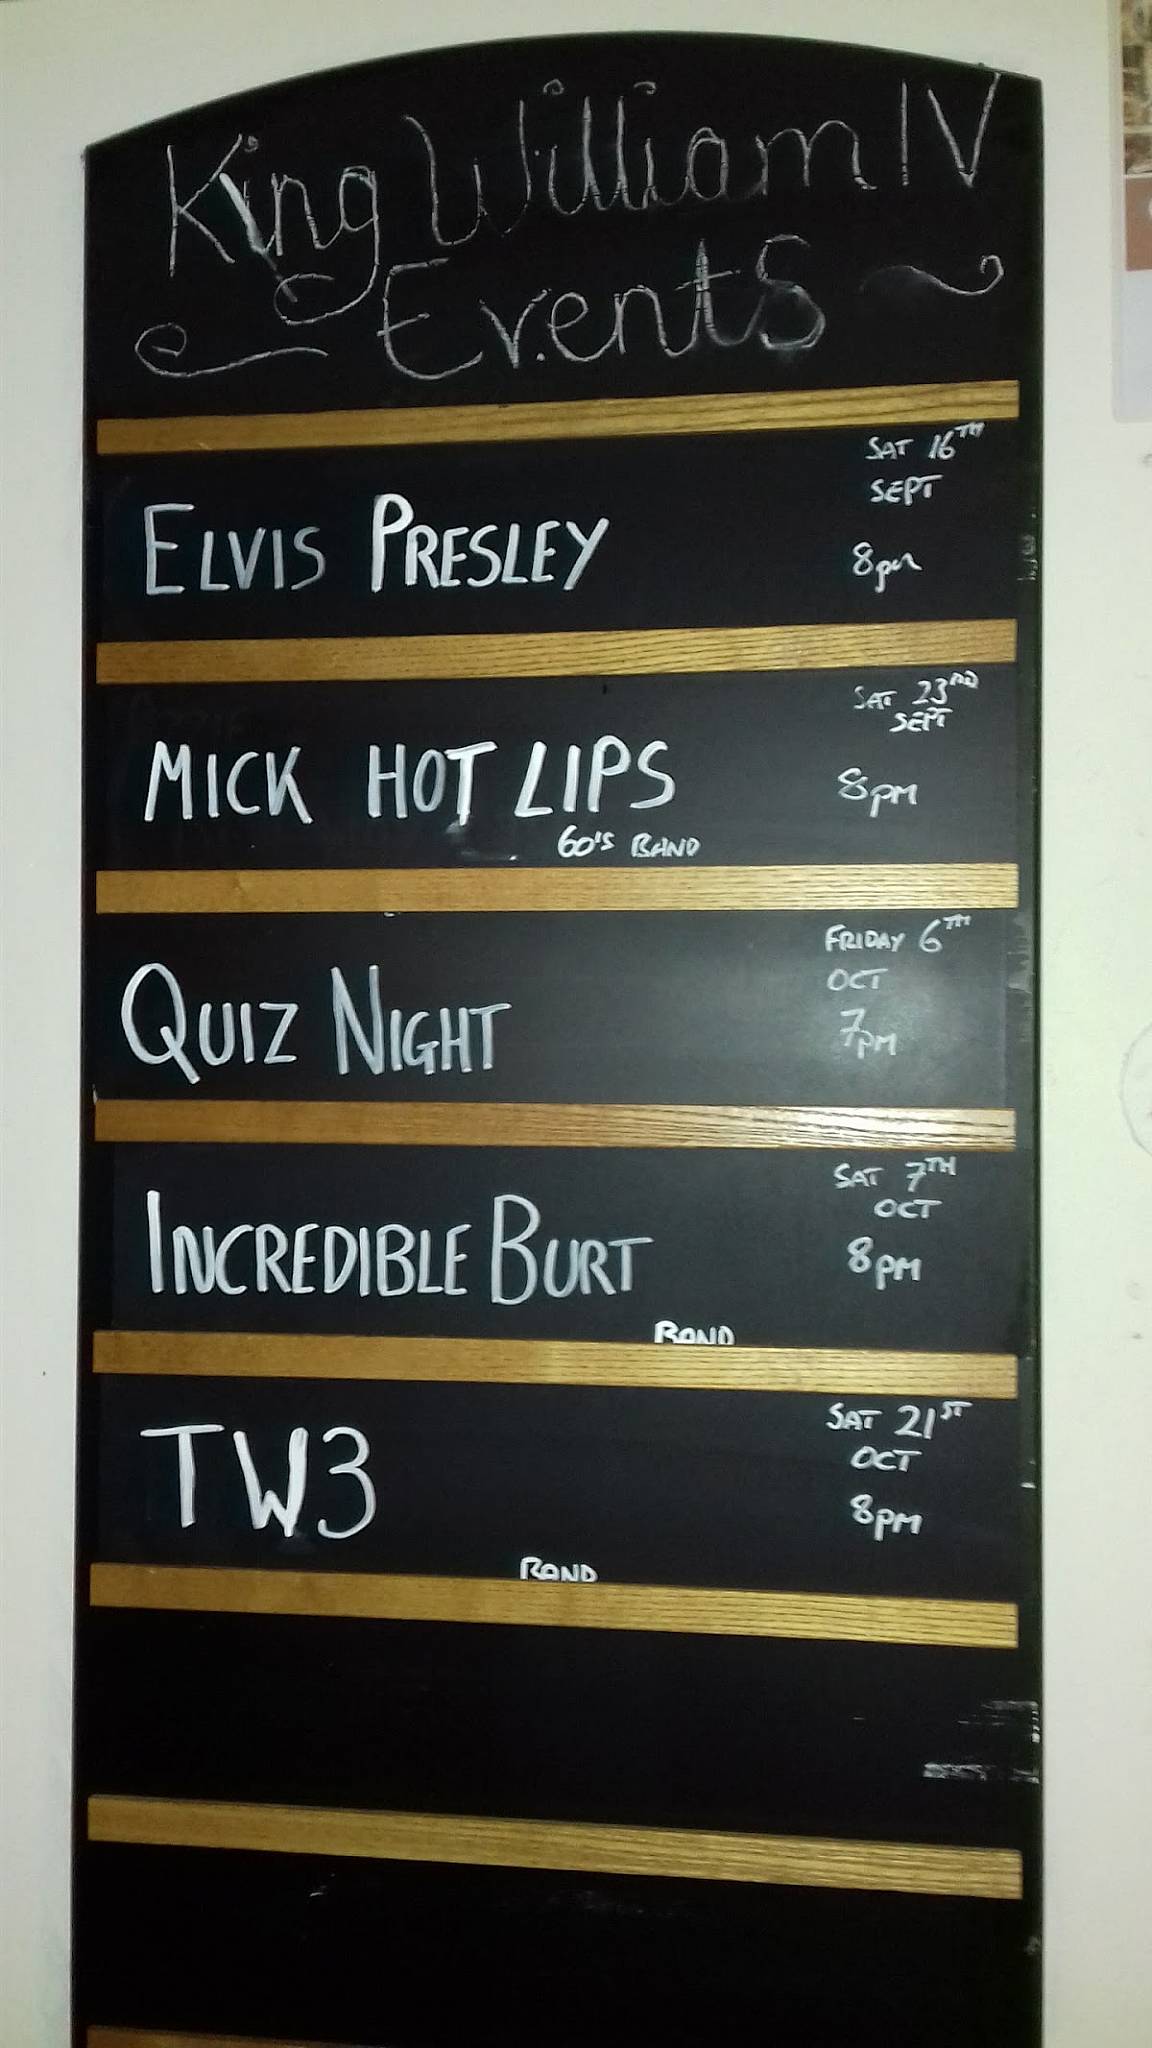 King William IV
Events
ELVIS PRESLEY
SAT 16TH
SEPT
8pm
MICK HOT LIPS
60'S BAND
SAT 23RD
SEPT
8PM
QUIZ NIGHT
FRIDAY 6TH
OCT
7PM
INCREDIBLE BURT
BAND
SAT 7TH
OCT
8PM
TW3
BAND
SAT 21ST
OCT
8PM